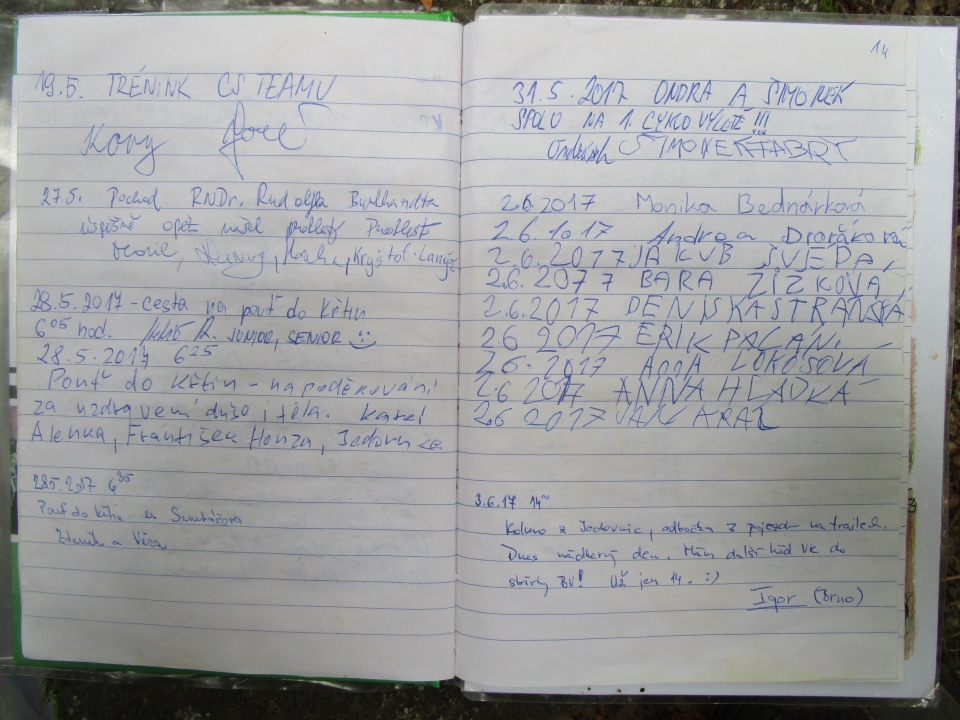 19.5. TRÉNINK CS TEAMU
Kovy
27.5. Pochod RNDr. Rudolfa Burkhardta
úspěšně opět našel
Kryštof
28.5.2017 - cesta na pouť do Křtin
6 05 hod. JUNIOR, SENIOR :)
28.5.2017 6 25
Pouť do Křtin - na poděkování
za uzdravení duše i těla. Karel
Alenka, František Honza, Jedovnice
28.5.2017 6 35
Pouť do Křtin
Zdeněk a Věra
14
31.5.2017 ONDRA A ŠIMONEK
SPOLU NA 1. CYKLO VÝLETĚ !!!
2.6.2017 Monika Bednárková
2.6.2017 Andrea Dvořáková
2.6.2017 JAKUB ŠVEDA,
2.6.2017 BARA ŽIŽKOVÁ
2.6.2017 DENISKA STRÁNSKÁ,
2.6 2017 ERIK PAGÁNI
2.6.2017 ANNA LOKOSOVÁ
2.6 2017 ANNA HLADKÁ
2.6 2017 JAN KRÁL
3.6.17 14 00
Kolmo z Jedovnic, odbočka z na trailech.
Dnes nádherný den. Mám další bod VK do
sbírky BV! Už jen 14. :)
Igor (Brno)